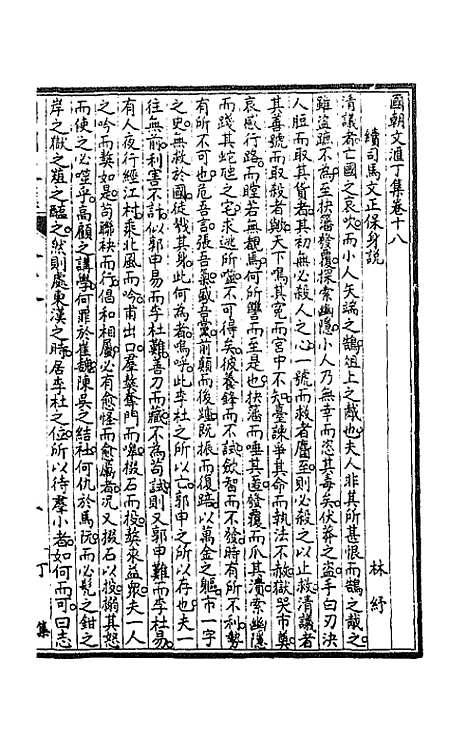 國朝文滙丁集卷十八
續司馬文正保身說
林紓
清議者亡國之哀吹而小人矢端之鵠俎上之胾也夫人非其所甚恨而鵠之胾之
雖盜蹠不爲至抉藩發覆探索幽隱小人乃無幸而恣其毒矣伏莽之盜手白刃決
人脰而取其貨者其初無必殺人之心一號而救者麕至則必殺之以止救清議者
其善號而取殺者與天下鳴其寃而宮中不知臺諫爭其命而執法不赦獄哭市奠
哀感行路而瞠若無覩焉何所讐而至是也抉藩而唾其面發覆而爪其潰索幽隱
而踐其蛇虺之宅求逃所噬不可得矣彼養鋒而不試飲智而不發時有所不利勢
有所不可也危吾言張吾氣盛吾黨前顛而後踵既振而復踣以萬金之軀市一字
之史無救於國徒戕其身此何爲者嗚呼此李杜之所以亡郭申之所以存也夫一
往無前利害不計以郭申易而李杜難善刃而藏不爲苟試則又郭申難而李杜易
有人夜行經江村乘北風而吟甫出口羣獒奪門而嘷掇石而投獒來益衆夫一人
之吟而獒如是苟聯袂而行倡和相屬必有愈怪而愈厲者况又掇石以投撩其怒
而使之必噬乎高顧之講學何罪於崔魏陳吳之結社何仇於馬阮而必髡之鉗之
岸之獄之殖之醢之然則處東漢之時居李杜之位所以待羣小者如何而可曰志
丁
集